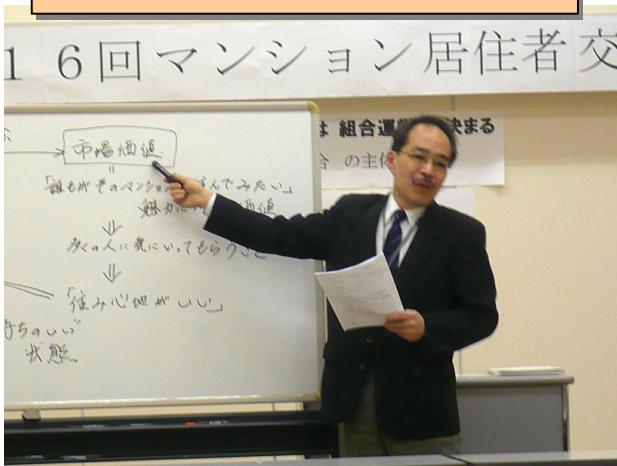 16回マンション居住者交
は 組合運 決まる
合 の主体
市場価値
「誰もがそのマンション んでみたい」
魅力 価値
次の人に気にいってもらうこと
「住み心地がいい」
持ちのいい
状態